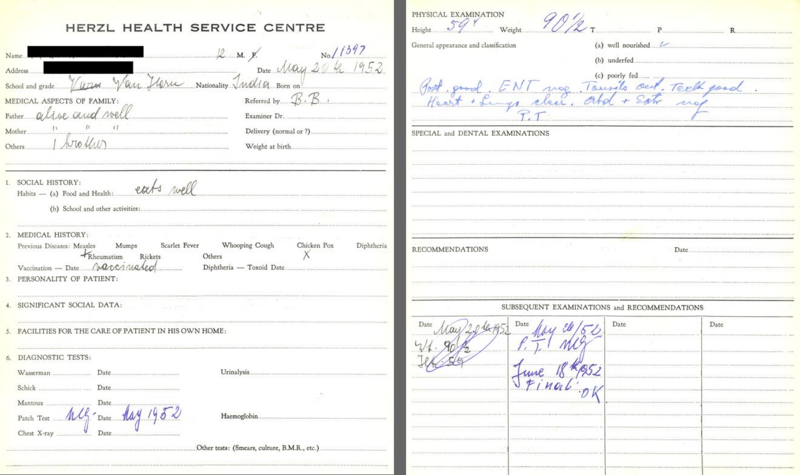 HERZL HEALTH SERVICE CENTRE
Name 12 M. F. No. 11397
Address Date May 20th 1952
School and grade Van Horn Nationality India Born on
MEDICAL ASPECTS OF FAMILY: Referred by B.B.
Father alive and well Examiner Dr.
Mother " " " Delivery (normal or ?)
Others 1 brother Weight at birth
1. SOCIAL HISTORY:
Habits — (a) Food and Health: eats well
(b) School and other activities:
2. MEDICAL HISTORY:
Previous Diseases: Measles Mumps Scarlet Fever Whooping Cough Chicken Pox Diphtheria
+ Rheumatism Rickets Others X
Vaccination — Date vaccinated Diphtheria — Toxoid Date
3. PERSONALITY OF PATIENT:
4. SIGNIFICANT SOCIAL DATA:
5. FACILITIES FOR THE CARE OF PATIENT IN HIS OWN HOME:
6. DIAGNOSTIC TESTS:
Wasserman Date Urinalysis
Schick Date
Mantoux Date
Patch Test Neg. Date May 1952 Haemoglobin
Chest X-ray Date
Other tests: (Smears, culture, B.M.R., etc.)
PHYSICAL EXAMINATION
Height 59" Weight 90½ T P R
General appearance and classification (a) well nourished ✓
(b) underfed
(c) poorly fed
Post. good. ENT neg. Tonsils out. Teeth good.
Heart + Lungs clear. Abd + neg
P.T
SPECIAL and DENTAL EXAMINATIONS
RECOMMENDATIONS Date
SUBSEQUENT EXAMINATIONS and RECOMMENDATIONS
Date May 20th 1952
Wt. 90½
59
Date May 20/52
P.T. Neg
June 18th 1952
Final: OK
Date
Date